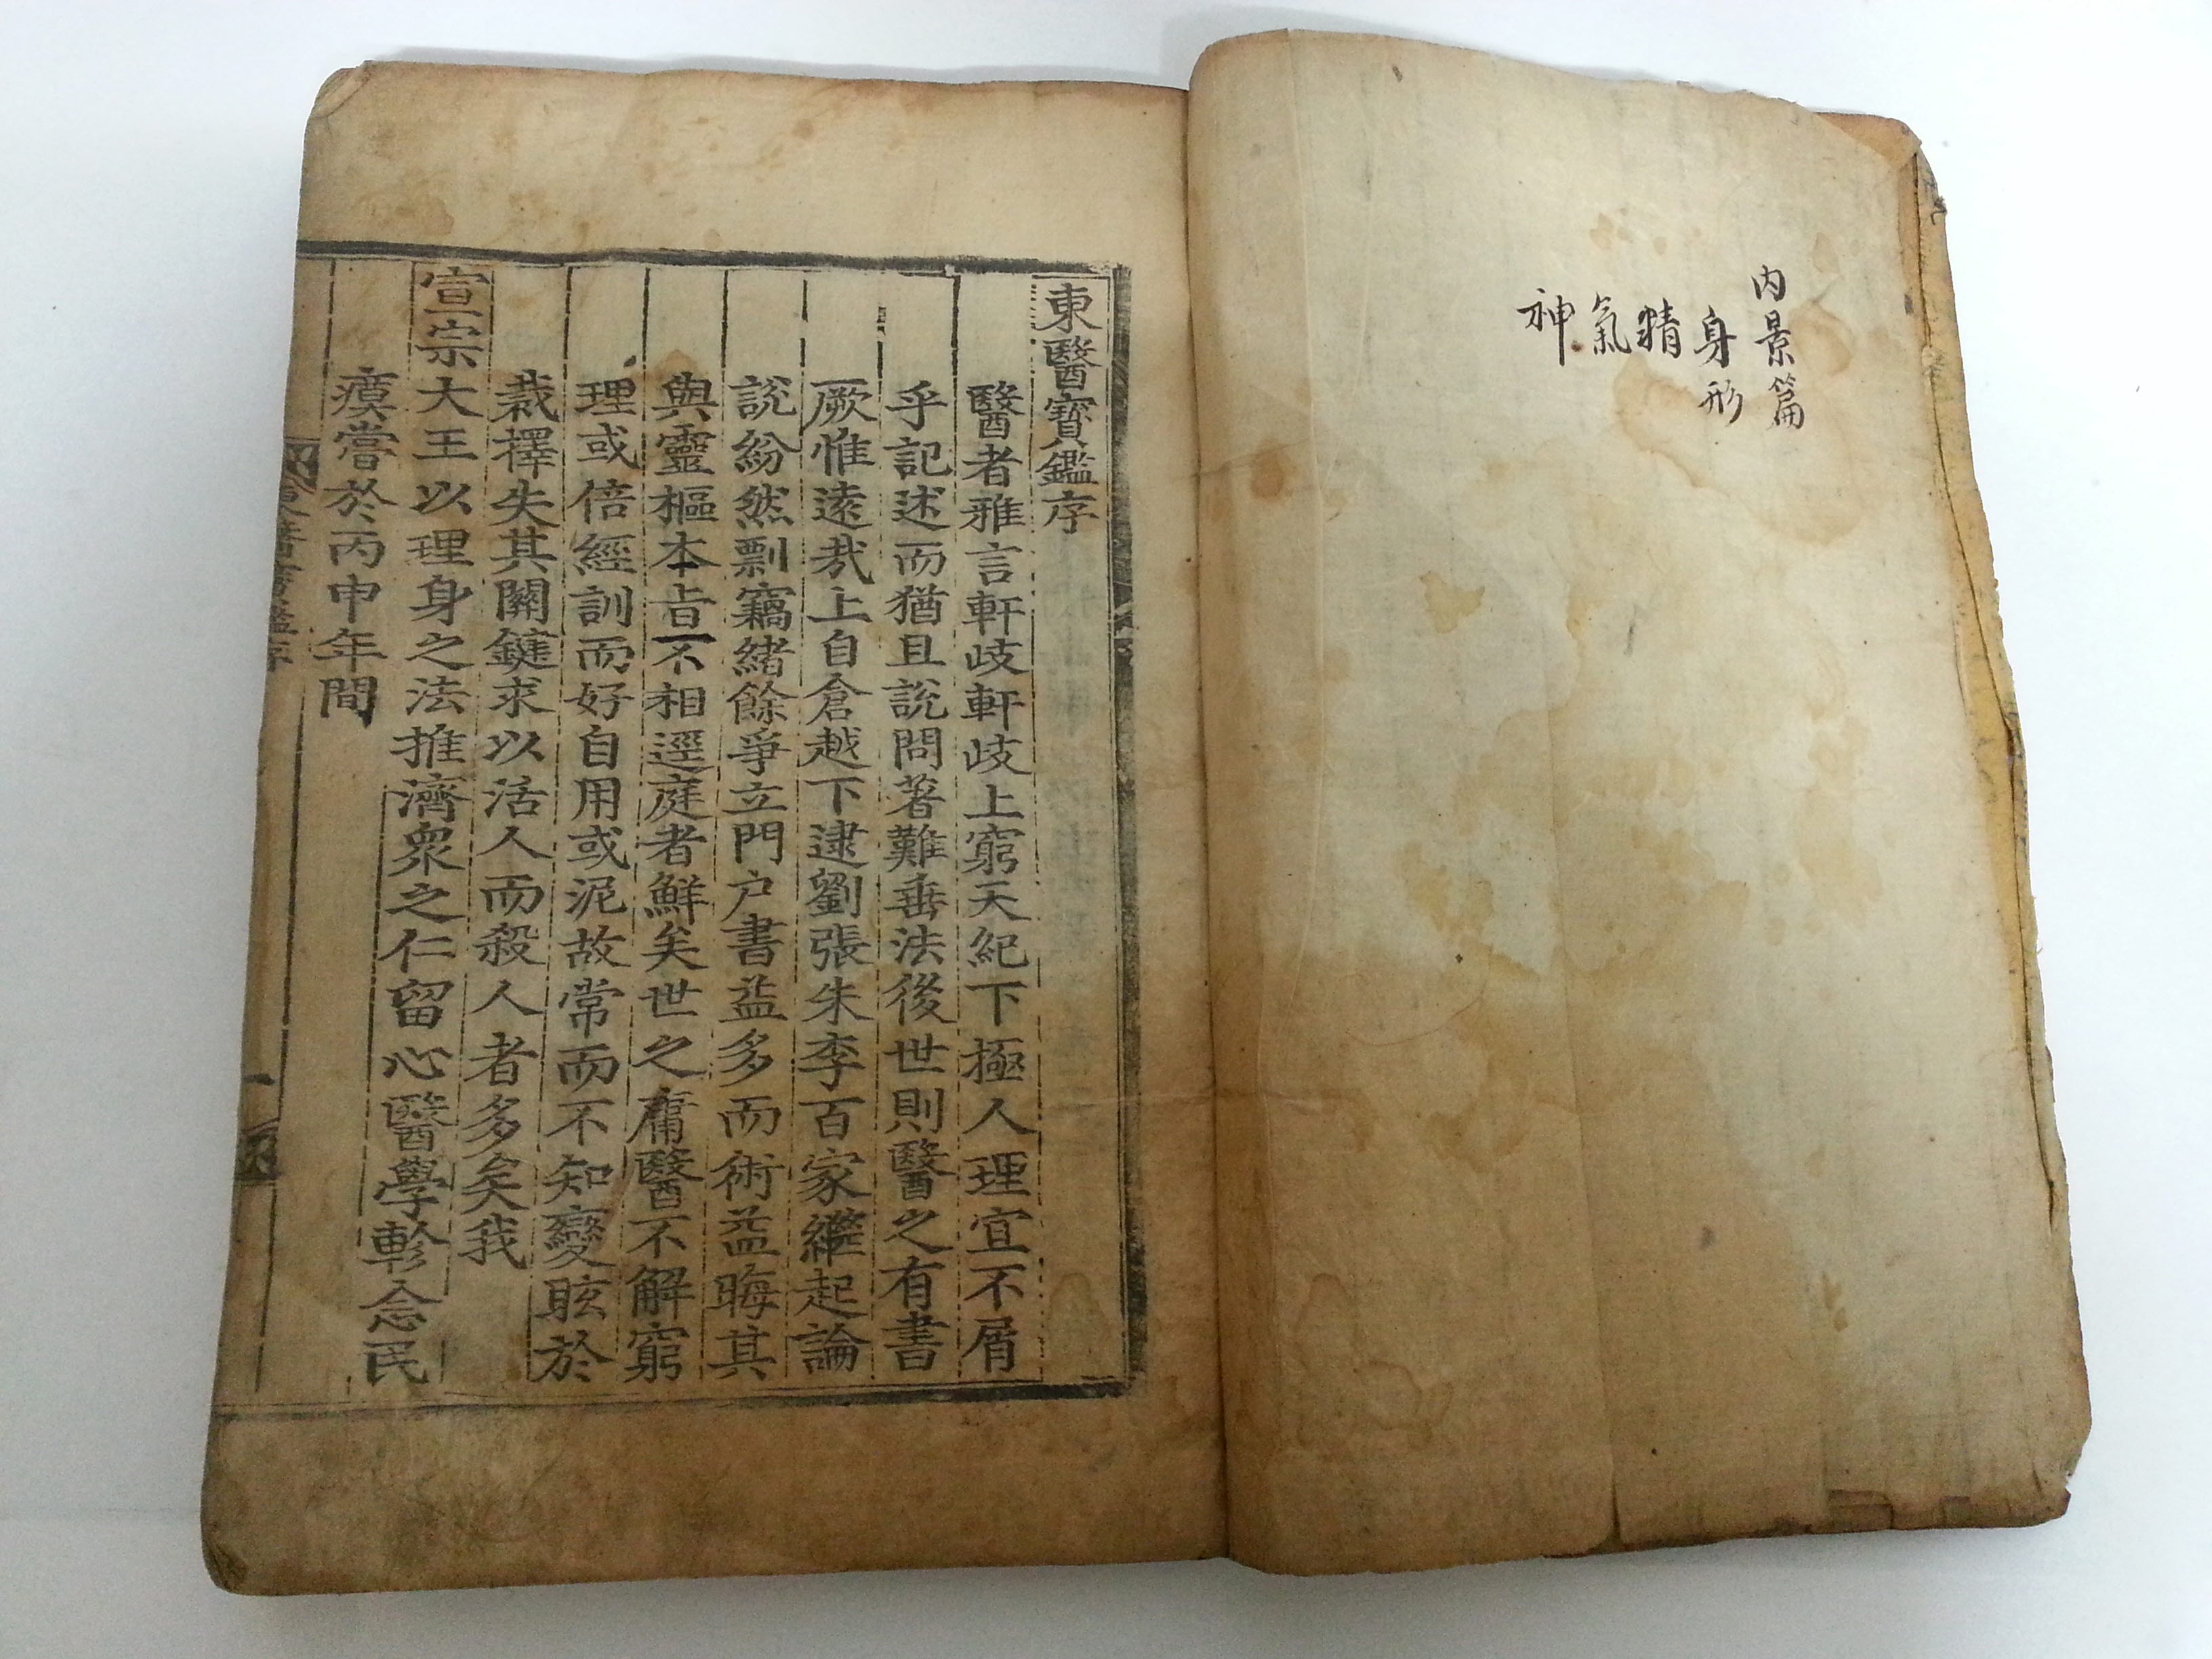 內景篇
身形
精
氣
神
東醫寶鑑序
醫者雅言軒歧軒歧上窮天紀下極人理宜不屑
乎記述而猶且說問著難垂法後世則醫之有書
厥惟遠㢤上自倉越下逮劉張朱李百家繼起論
說紛然剽竊緖餘爭立門戶書益多而術益晦其
與靈樞本旨不相逕庭者鮮矣世之庸醫不解窮
理或倍經訓而好自用或泥故常而不知變眩於
裁擇失其關鍵求以活人而殺人者多矣我
宣宗大王以理身之法推濟衆之仁留心醫學軫念民
瘼嘗於丙申年間
東醫寶鑑序
一